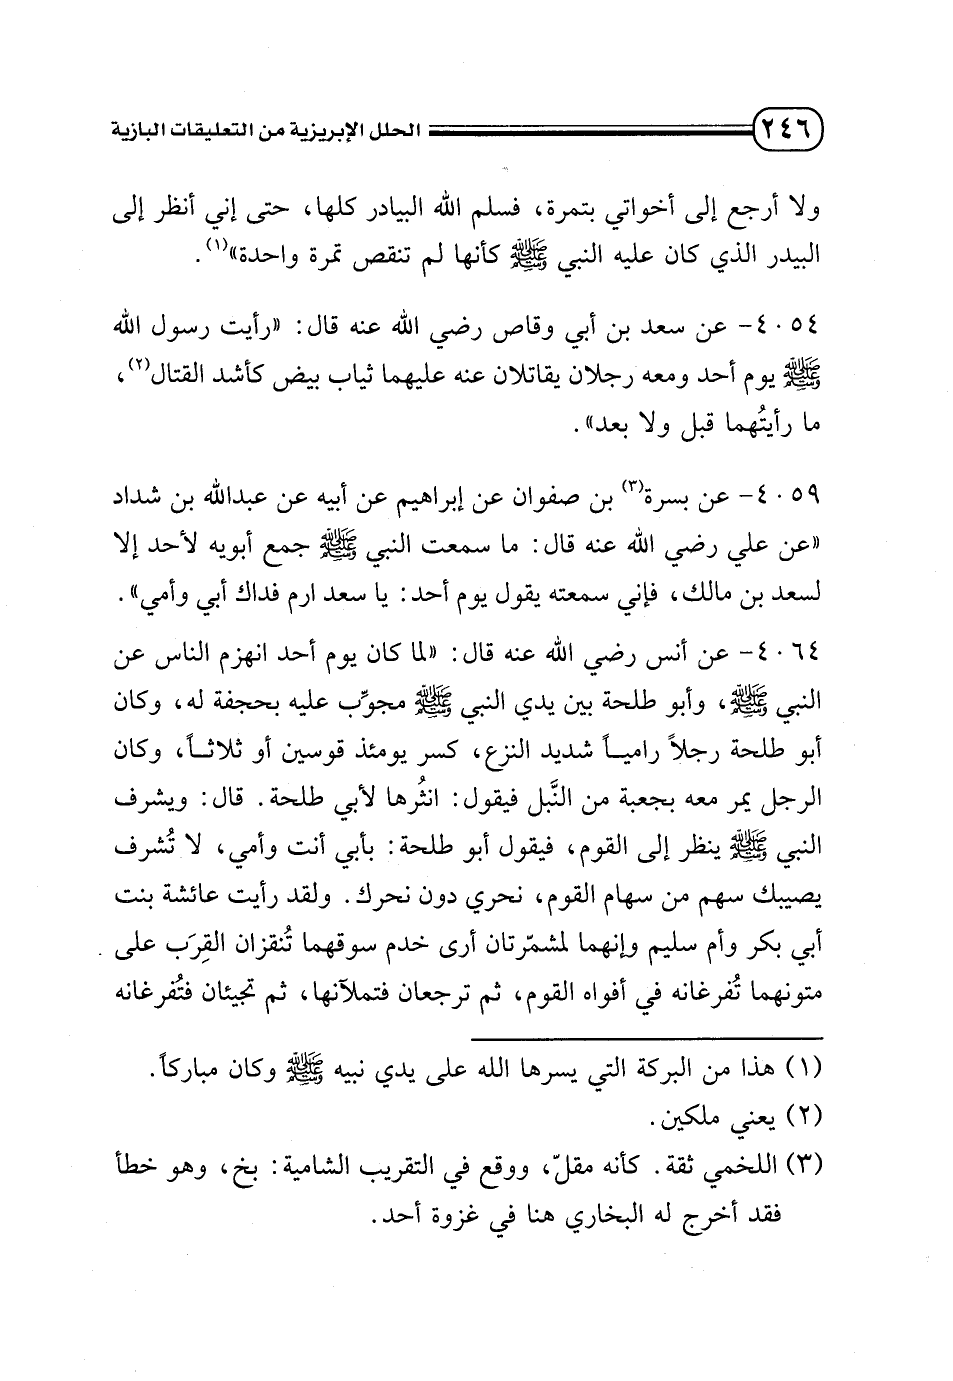 ٢٤٦ الحلل الإبريزية من التعليقات البازية
ولا أرجع إلى أخواتي بتمرة، فسلم الله البيادر كلها، حتى إني أنظر إلى
البيدر الذي كان عليه النبي ﷺ كأنها لم تنقص تمرة واحدة»(١).
٤٠٥٤- عن سعد بن أبي وقاص رضي الله عنه قال: «رأيت رسول الله
ﷺ يوم أحد ومعه رجلان يقاتلان عنه عليهما ثياب بيض كأشد القتال(٢)،
ما رأيتُهما قبل ولا بعد».
٤٠٥٩- عن بسرة(٣) بن صفوان عن إبراهيم عن أبيه عن عبدالله بن شداد
«عن علي رضي الله عنه قال: ما سمعت النبي ﷺ جمع أبويه لأحد إلا
لسعد بن مالك، فإني سمعته يقول يوم أحد: يا سعد ارم فداك أبي وأمي».
٤٠٦٤- عن أنس رضي الله عنه قال: «لما كان يوم أحد انهزم الناس عن
النبي ﷺ، وأبو طلحة بين يدي النبي ﷺ مجوِّب عليه بحجفة له، وكان
أبو طلحة رجلاً رامياً شديد النزع، كسر يومئذ قوسين أو ثلاثاً، وكان
الرجل يمر معه بجعبة من النَّبل فيقول: انثُرها لأبي طلحة. قال: ويشرف
النبي ﷺ ينظر إلى القوم، فيقول أبو طلحة: بأبي أنت وأمي، لا تُشرف
يصيبك سهم من سهام القوم، نحري دون نحرك. ولقد رأيت عائشة بنت
أبي بكر وأم سليم وإنهما لمشمّرتان أرى خدم سوقهما تُنقزان القِرَب على
متونهما تُفرغانه في أفواه القوم، ثم ترجعان فتملآنها، ثم تجيئان فتُفرغانه
(١) هذا من البركة التي يسرها الله على يدي نبيه ﷺ وكان مباركاً.
(٢) يعني ملكين.
(٣) اللخمي ثقة. كأنه مقلّ، ووقع في التقريب الشامية: بخ، وهو خطأ
فقد أخرج له البخاري هنا في غزوة أحد.